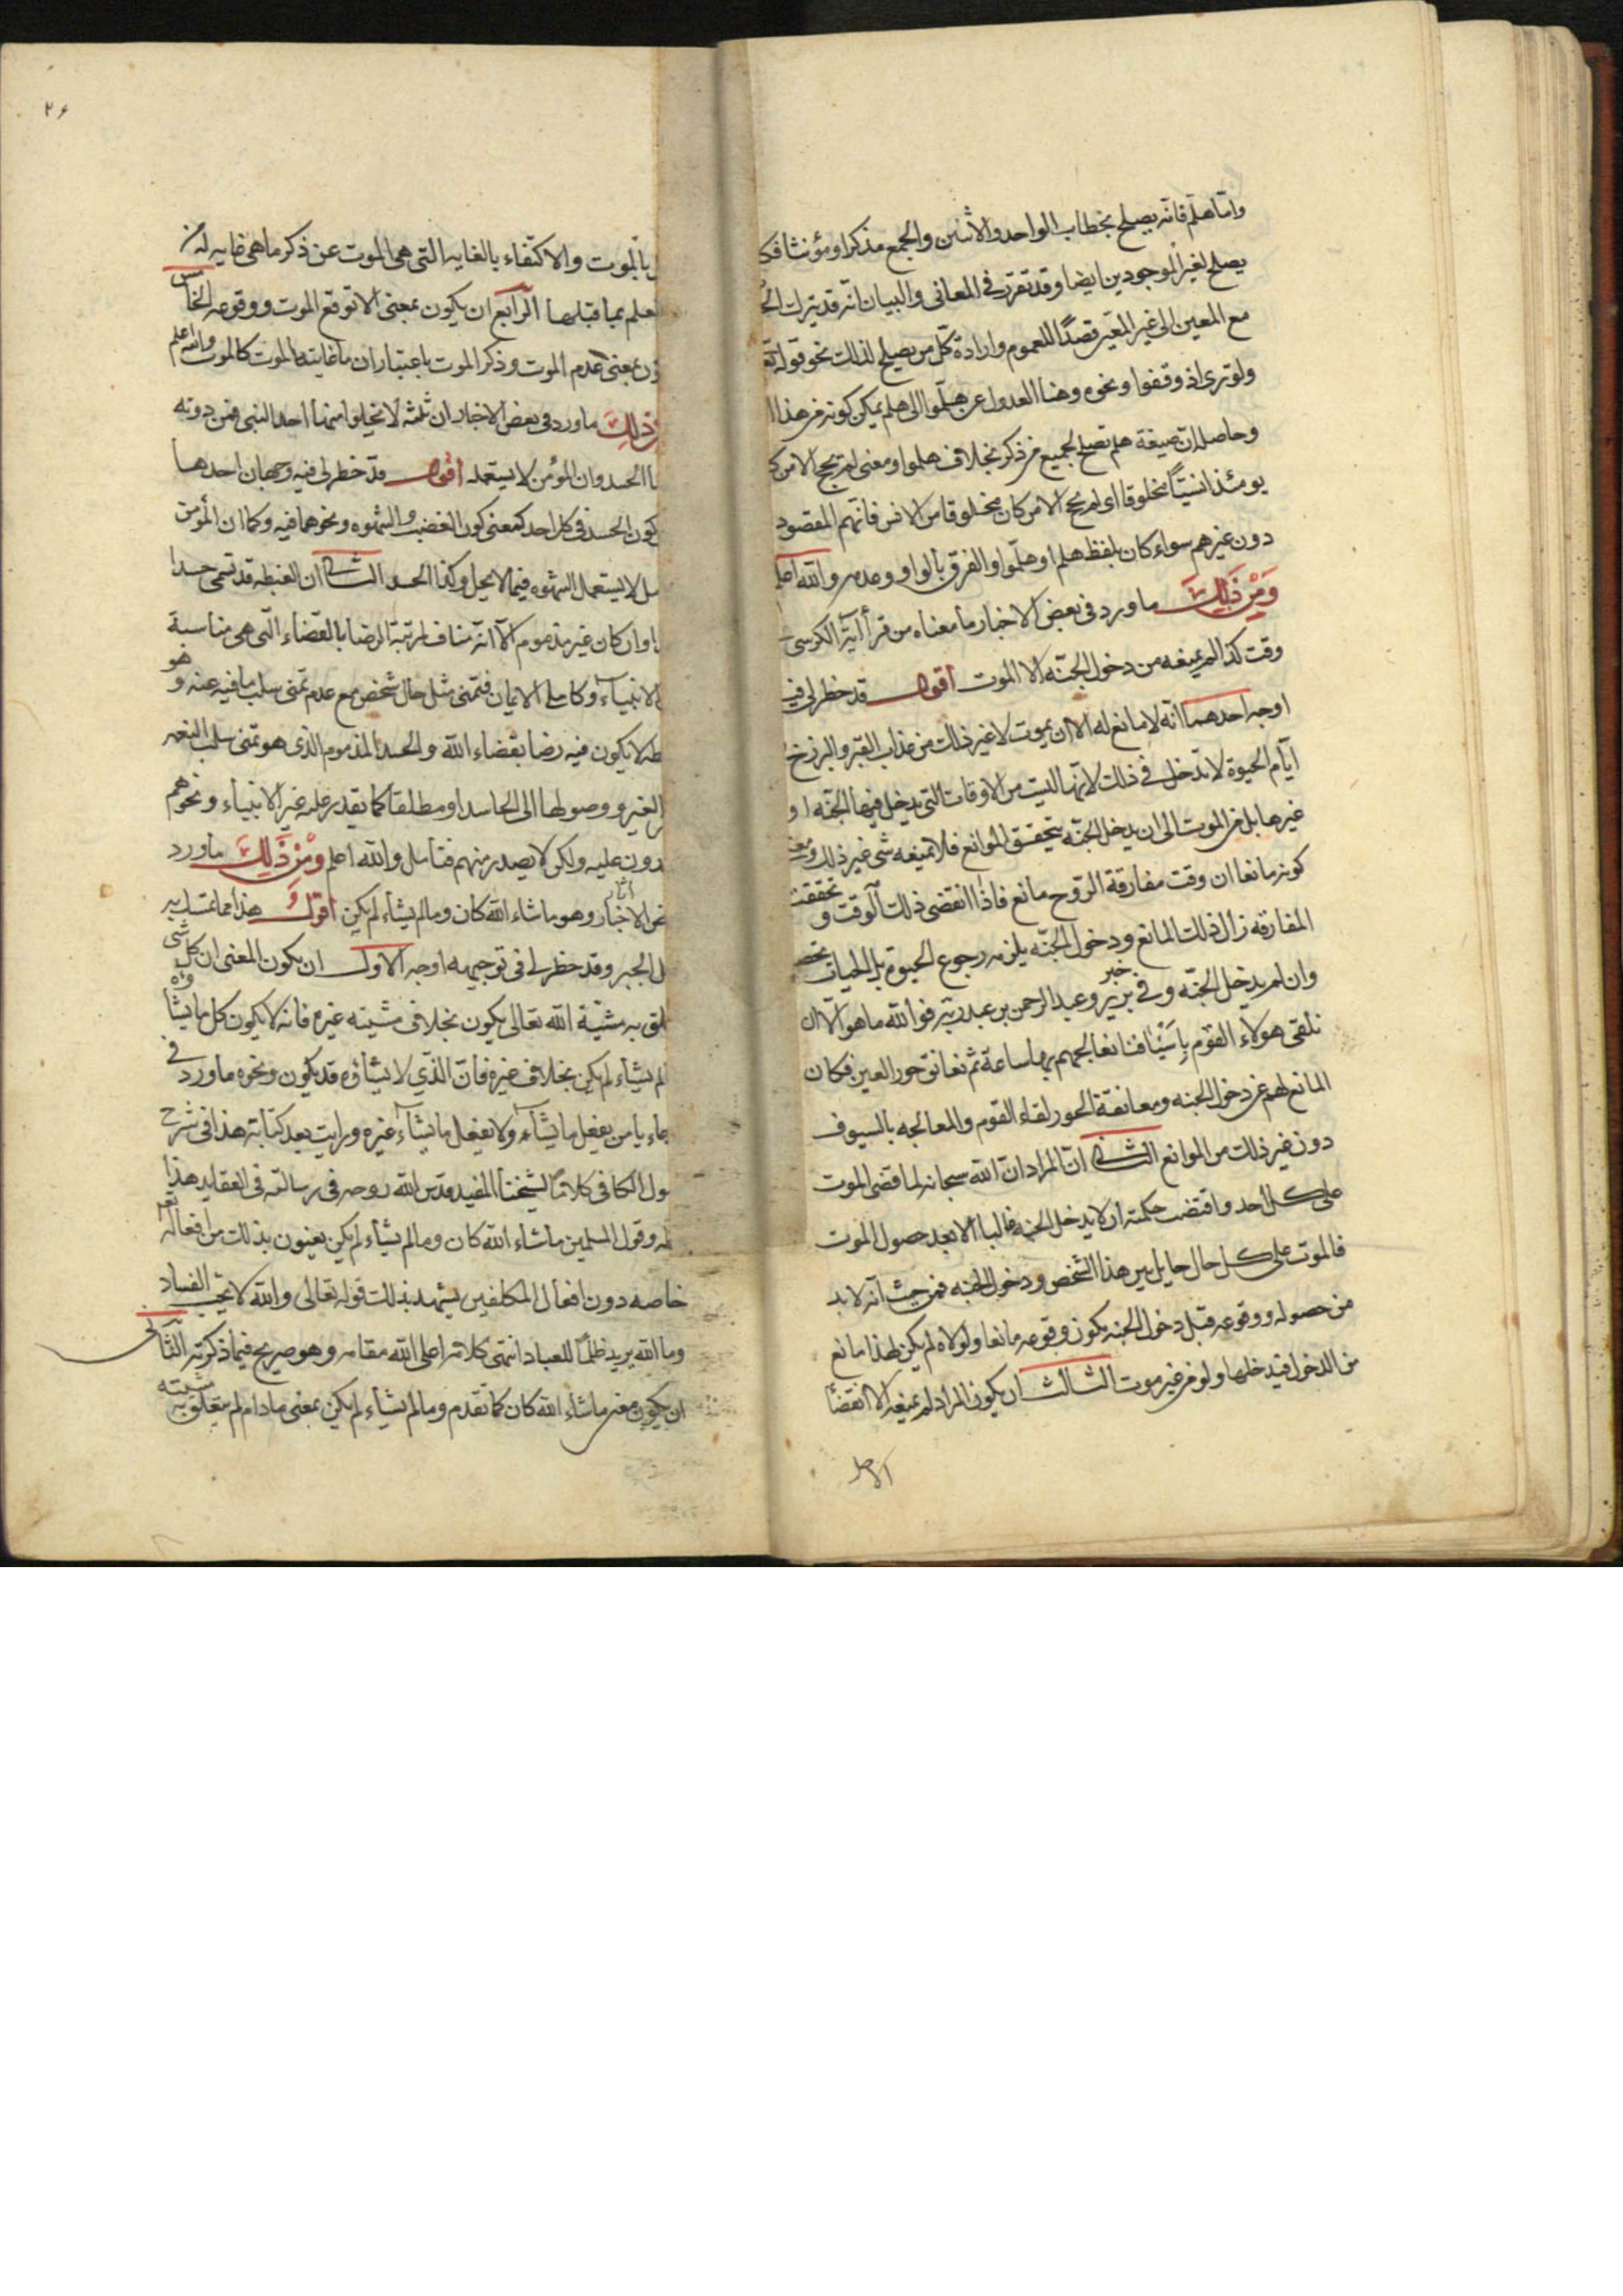 واما هلم فانه يصلح بخطاب الواحد والاثنين والجمع مذكرا ومؤنثا فكا
يصلح لغير الموجودين ايضا وقد تقرر في المعاني والبيان انه قد يترك الخ
مع المعين الى غير المعين قصدًا للعموم وارادة كل من يصلح لذلك نحو قوله تع
ولو ترى اذ وقفوا ونحوه وهنا العدول عن هلموا الى هلم يمكن كونه من هذا ا
وحاصله ان صيغة هلم تصلح لجميع من ذكر بخلاف هلموا ومعنى لم يحج الا من ك
يومئذ انسيًّا مخلوقا اى لم يحج الا من كان مخلوقا من الانس فانهم المقصود
دون غيرهم سواء كان بلفظ هلم او هلموا والفرق بالواو وعدمه والله اعلم
وَمِنْ ذَلِكَ ما ورد في بعض الاخبار ما معناه من قرأ آية الكرسى
وقت كذا لم يمنعه من دخول الجنه الا الموت اقول قد خطر لى فيه
اوجه احدهما انه لا مانع له الا ان يموت لا غير ذلك من عذاب القبر والبرزخ
ايّام الحيوة لا تدخل في ذلك لانها ليست من الاوقات التى يدخل فيها الجنه او
غيرها بل من الموت الى ان يدخل الجنه يتحقق الموانع فلا يمنعه شى غير ذلك ومعنى
كونه مانعا ان وقت مفارقة الرّوح مانع فاذا انقضى ذلك الوقت وتحققت
المفارقه زال ذلك المانع ودخول الجنه يلزمه رجوع الحيوة بل الحيات
وان لم يدخل الجنه وفي خبر برير وعبد الرحمن بن عبد ربه فوالله ما هو الا ان
نلقى هولاء القوم بِاَسيافنا نعالجهم بها ساعة ثم نعانق حور العين فكان
المانع لهم عن دخول الجنه ومعانقة الحور لقاء القوم والمعالجه بالسيوف
دون غير ذلك من الموانع الثانى ان المراد ان الله سبحانه لما قضى الموت
على كل احد واقتضت حكمته ان لا يدخل الجنه غالبا الا بعد حصول الموت
فالموت على كل حال حايل بين هذا الشخص ودخول الجنه فمن حيث انه لا بد
من حصوله ووقوعه قبل دخول الجنه يكون وقوعه مانعا ولولاه لم يكن لهذا مانع
من الدخول فيدخلها ولو من غير موت الثالث ان يكون المراد لم يمنعه الا انقضاء
۲۶
بالموت والاكتفاء بالغايه التى هى الموت عن ذكر ما هى غايه له
لعلم بما قبلها الرابع ان يكون بمعنى الا توقع الموت ووقوعه الخامس
ون بمعنى عدم الموت وذكر الموت باعتبار ان ما غايته الموت كالموت والله اعلم
من ذلِكَ ما ورد في بعض الاخبار ان ثلثه لا يخلوا منها احد النبى فمن دونه
ا الحسد وان المؤمن لا يستعمله اقول قد خطر لى فيه وجهان احدهما
كون الحسد في كل احد كمعنى كون الغضب والشهوه ونحوهما فيه وكما ان المؤمن
مل لا يستعمل الشهوه فيما لا يحل وكذا الحسد الثانى ان الغبطه قد تسمى حسدا
ا وان كان غير مذموم الا انه مناف لمرتبة الرضا بالقضاء التى هى مناسبة
الانبياء وكاملى الايمان فتمنى مثل حال شخص مع عدم تمنى سلب ما فيه عنه وهو
طه لا يكون فيه رضا بقضاء الله والحسد المذموم الذى هو تمنى سلب النعمه
الغير ووصولها الى الحاسد او مطلقا كما يقدر عليه غير الانبياء ونحوهم
درون عليه ولكن لا يصدر منهم فتامل والله اعلم وَمِنْ ذَلِكَ ما ورد
ض الاخبار وهو ما شاء الله كان وما لم يشأ لم يكن اقول هذا مما تمسك به
ل الجبر وقد خطر لى في توجيهه اوجه الاول ان يكون المعنى ان كل شى
لق به مشية الله تعالى يكون بخلاف مشيته غيره فانه لا يكون كل ما يشاء
لم يشاء لم يكن بخلاف غيره فان الذي لا يشاؤه قد يكون ونحوه ما ورد في
عاء يا من يفعل ما يشاء ولا يفعل ما يشاء غيره ورايت بعد كتابة هذا في شرح
ول الكافى كلاما لشيخنا المفيد قدس الله روحه في رسالته في العقايد هذا
له وقول المسلمين ما شاء الله كان وما لم يشاء لم يكن يعنون بذلك من افعاله تع
خاصه دون افعال المكلفين يشهد بذلك قوله تعالى والله لا يحب الفساد
وما الله يريد ظلمًا للعباد انتهى كلامه اعلى الله مقامه وهو صريح فيما ذكرته الثانى
ان يكون معنى ما شاء الله كان كما تقدم وما لم يشاء لم يكن بمعنى ما دام لم يتعلق به مشيته